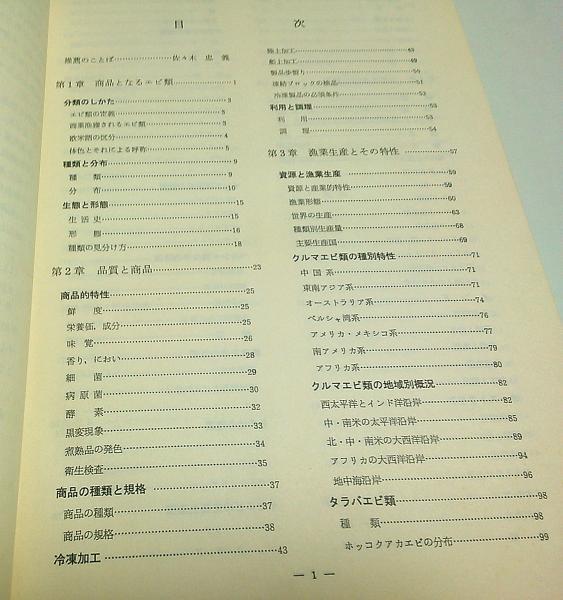 目次
推薦のことば……………佐々木 忠義
第1章 商品となるエビ類……………1
分類のしかた……………3
エビ類の定義……………3
商業漁獲されるエビ類……………3
欧米語の区分……………4
体色とそれによる呼称……………5
種類と分布……………9
種類……………9
分布……………10
生態と形態……………15
生活史……………15
形態……………16
種類の見分け方……………18
第2章 品質と商品……………23
商品的特性……………25
鮮度……………25
栄養価，成分……………25
味覚……………26
香り，におい……………28
細菌……………29
病原菌……………30
酵素……………32
黒変現象……………33
煮熟品の発色……………34
衛生検査……………35
商品の種類と規格……………37
商品の種類……………37
商品の規格……………38
冷凍加工……………43
陸上加工……………43
船上加工……………49
製品歩留り……………50
凍結ブロックの検品……………51
冷凍製品の必須条件……………52
利用と調理……………53
利用……………53
調理……………54
第3章 漁業生産とその特性……………57
資源と漁業生産……………59
資源と産業的特性……………59
漁業形態……………60
世界の生産……………63
種類別生産量……………68
主要生産国……………69
クルマエビ類の種別特性……………71
中国系……………71
東南アジア系……………71
オーストラリア系……………74
ペルシャ湾系……………76
アメリカ・メキシコ系……………77
南アメリカ系……………79
アフリカ系……………80
クルマエビ類の地域別概況……………82
西太平洋とインド洋沿岸……………82
中・南米の太平洋沿岸……………85
北・中・南米の大西洋沿岸……………89
アフリカの大西洋沿岸……………94
地中海沿岸……………96
タラバエビ類……………98
種類……………98
ホッコクアカエビの分布……………99
― 1 ―